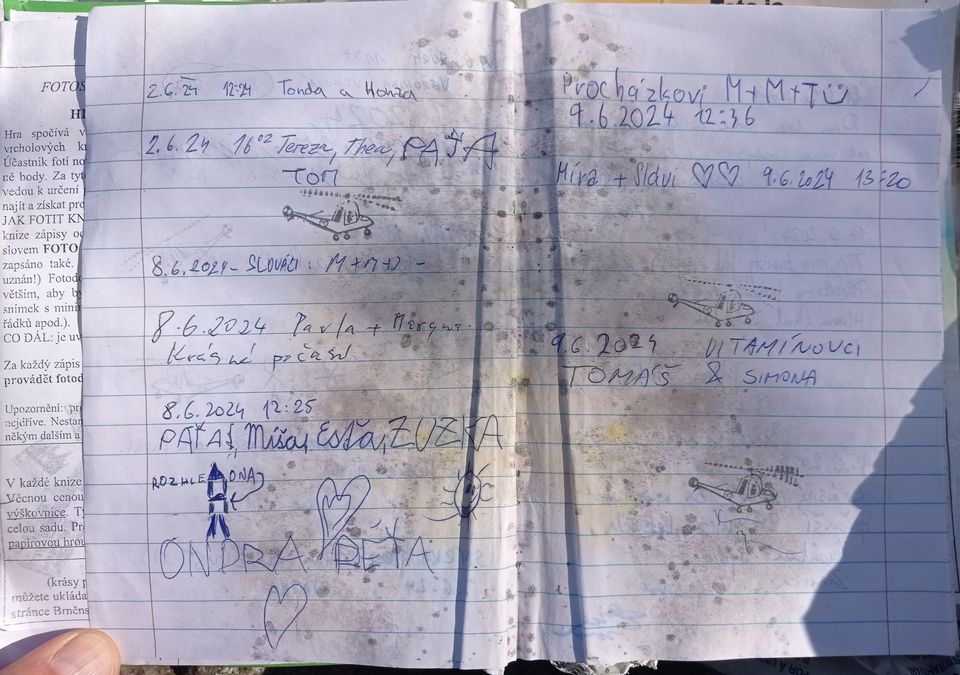 2.6.24 12:24 Tonda a Honza
2.6.24 16⁰² Tereza, Thea, PAŤA
TOM
8.6.2024 - SLOVÁCI: M+M+D -
8.6.2024 Pavla +
Krásné počasí
8.6.2024 12:25
PAŤAS, Míša, Esťa, ZUZKA
ROZHLE DNA
ONDRA PÉŤA
Procházkovi M+M+T
9.6.2024 12:36
Míra + Slávi 9.6.2024 13:20
9.6.2024 VITAMÍNOVCI
TOMÁŠ & SIMONA
FOTOS
Hra spočívá v
vrcholových k
Účastník fotí no
né body. Za tyt
vedou k určení p
najít a získat pro
JAK FOTIT KN
knize zápisy oc
slovem FOTO
zapsáno také.
uznán!) Fotodo
větším, aby by
snímek s minim
řádků apod.).
CO DÁL: je uv
Za každý zápis
provádět fotod
Upozornění: pr
nejdříve. Nestan
někým dalším a
V každé knize
Věcnou cenou
výškovnice. Ty
celou sadu. Pro
papírovou hrou
(krásy p
můžete ukláda
stránce Brněns